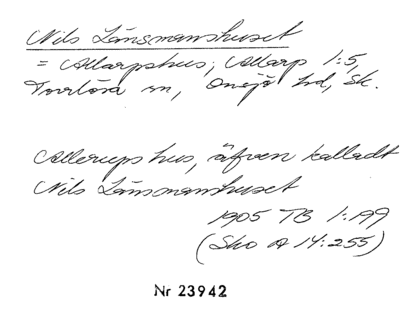 Nils Länsmanshuset
= Allarpshus; Allarp 1:5,
Torrlösa sn, Onsjö hd, Sk.
Allerups hus, äfven kalladt
Nils Länsmanshuset
1905 TB 1:199
(Sko A 14:255)
Nr 23942